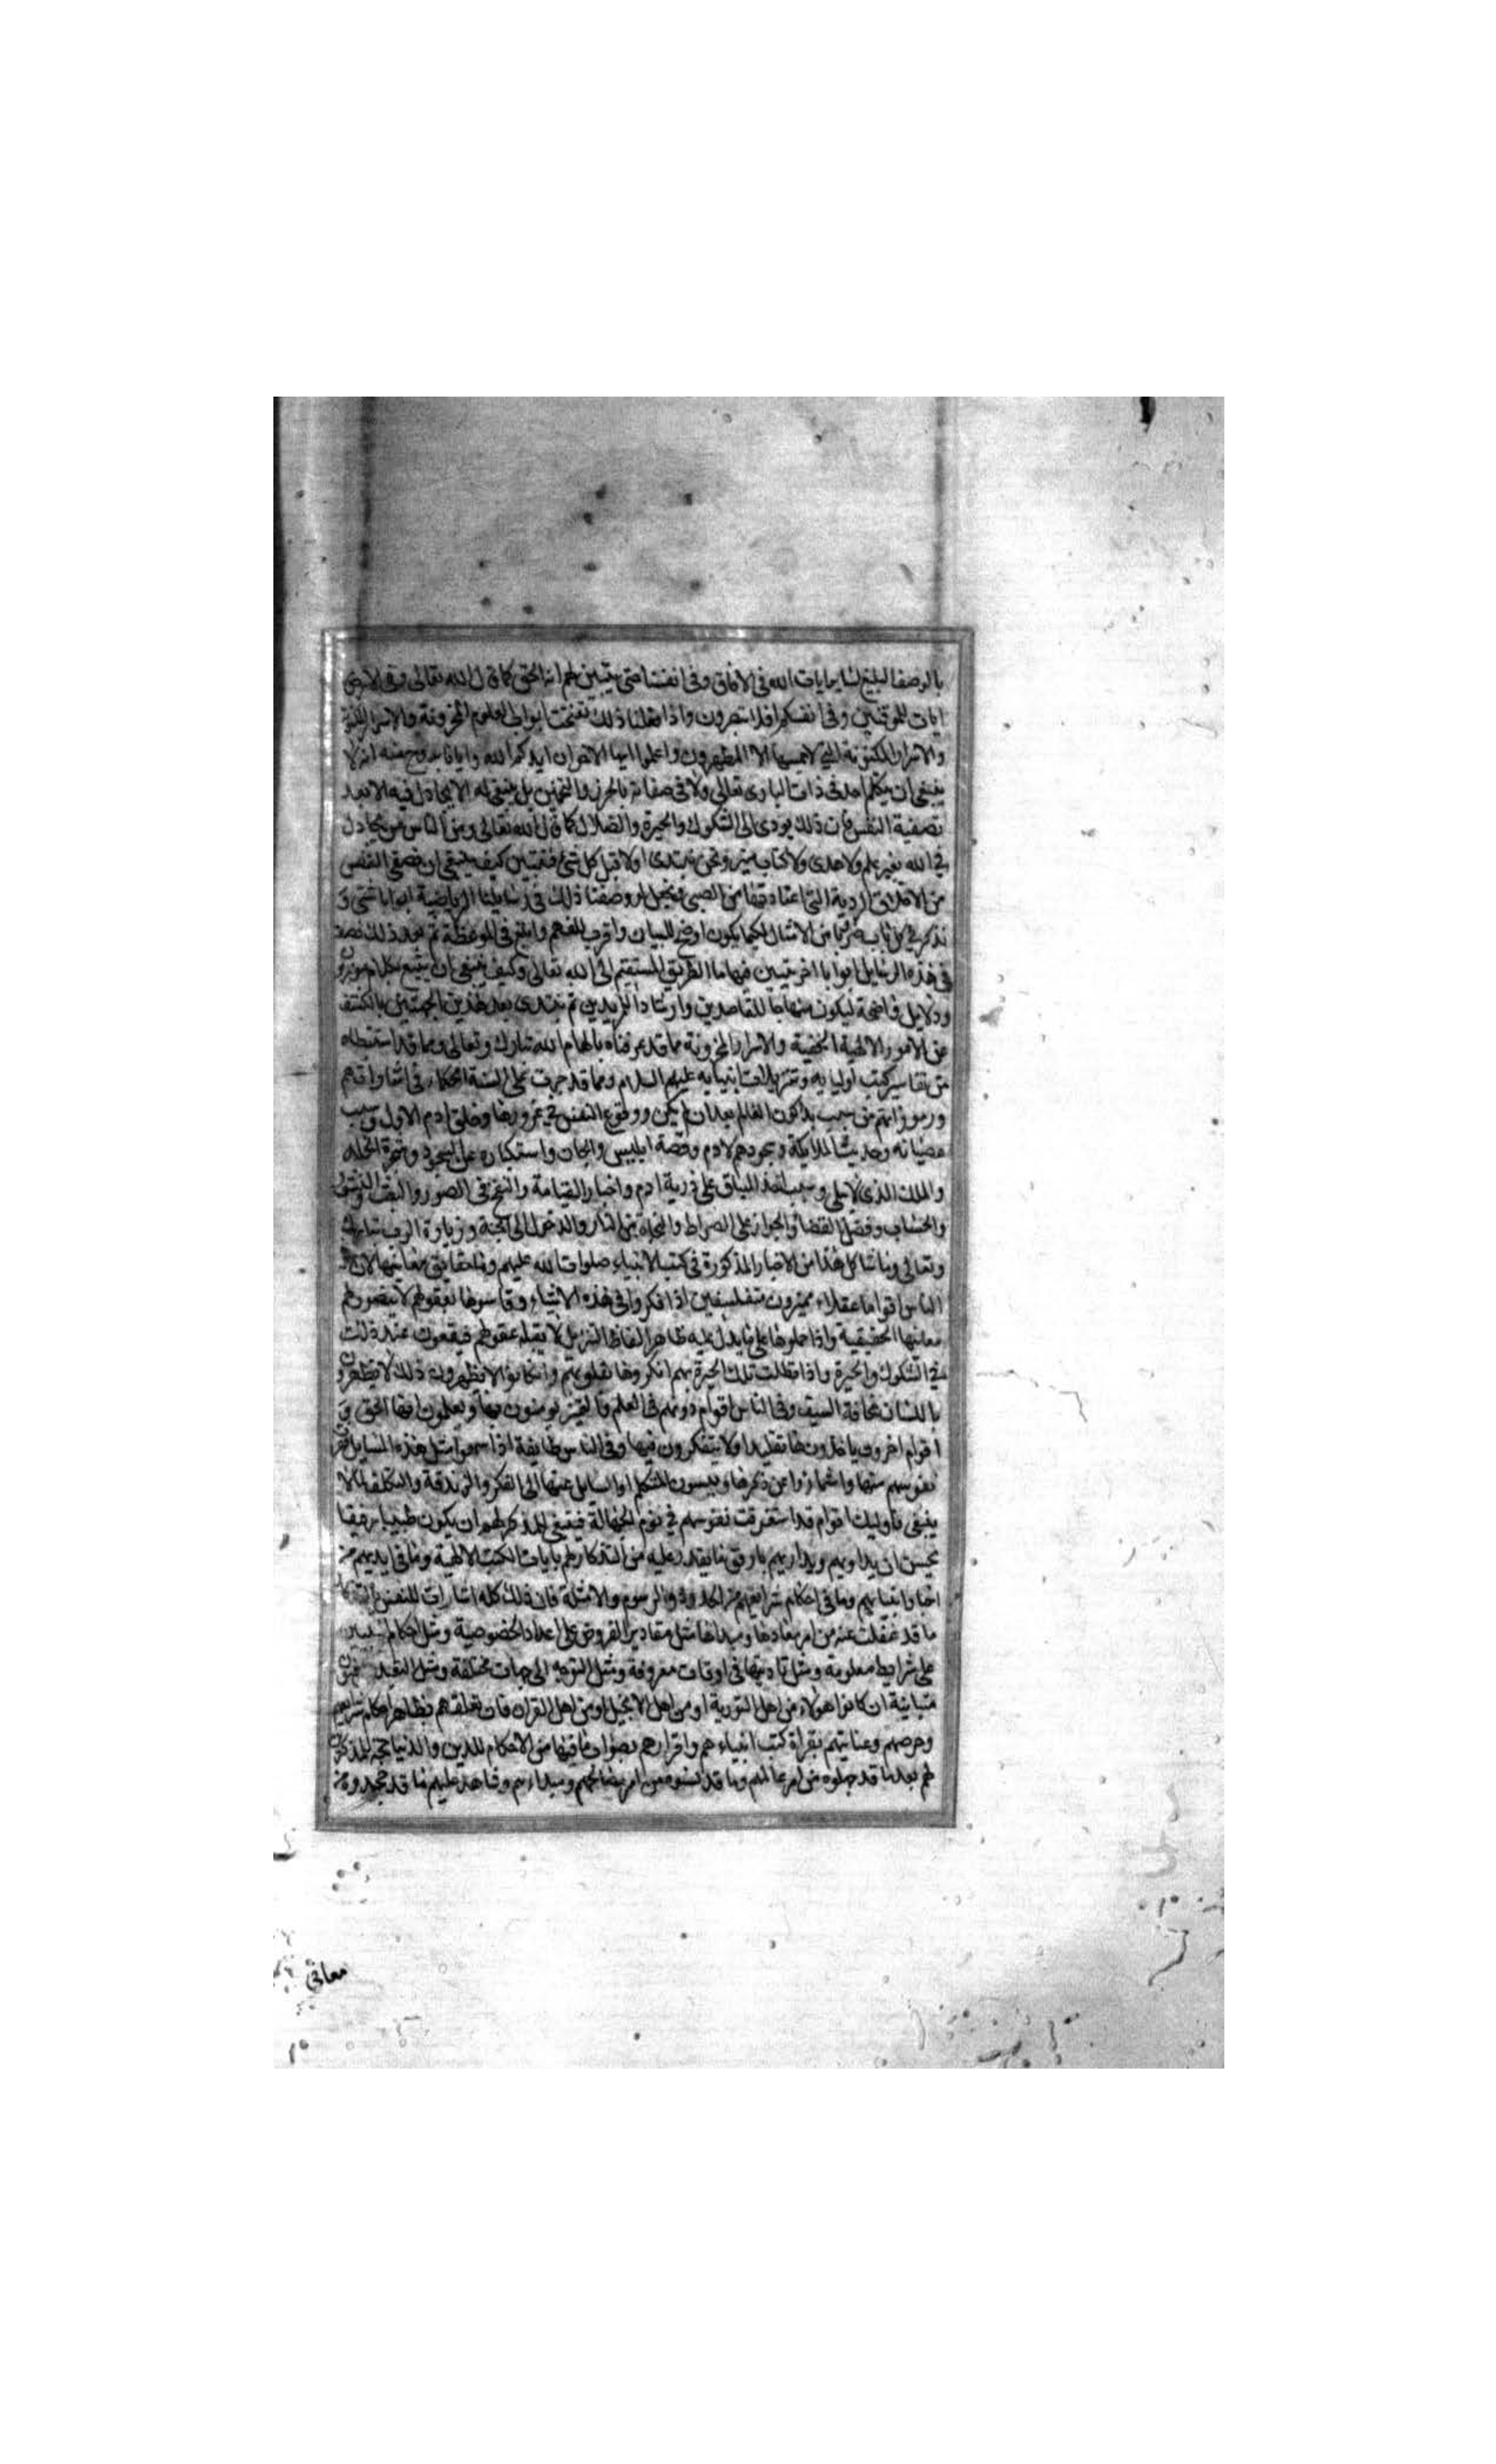 بالوصف البليغ لنا بايات الله فى الافاق وفى انفسنا حتى يتبين لهم انه الحق كما قال الله تعالى وفى الارض
ايات للموقنين وفى انفسكم افلا تبصرون واذا فعلنا ذلك تفتحت ابواب العلوم المخزونة والاسرار
والاسرار المكنونة التى لا يمسها الا المطهرون واعلموا ايها الاخوان ايدكم الله وايانا بروح منه انه لا
ينبغى ان يتكلم احد فى ذات البارى تعالى ولا فى صفاته بالحرز والتخمين بل ينبغى له الا يجادل فيه الا بعد
تصفية النفس فان ذلك يودى الى الشكوك والحيرة والضلال كما قال الله تعالى ومن الناس من يجادل
فى الله بغير علم ولا هدى ولا كتاب منير ونحن نبتدى اولا قبل كل شئ فنبين كيف ينبغى ان نصفى النفس
من الاخلاق الردية التى اعتادتها من الصبى وقد وصفنا ذلك فى رسايلنا الرياضية ابوابا شتى و
نذكر فى كل باب طرفا من الامثال لكيما يكون اوضح للبيان واقرب للفهم وابلغ فى الموعظة ثم بعد ذلك
فى هذه الرسايل ابوابا اخر نبين فيها ما الطريق المستقيم الى الله تعالى وكيف ينبغى ان يتبع بكلام موزون
ودلايل واضحة ليكون منهاجا للقاصدين وارشادا للمريدين ثم نبتدى بعد هذين الجهتين بالكشف
عن الامور الالهية الخفية والاسرار المخزونة مما قد عرفناه بالهام الله تبارك وتعالى ومما قد استنبطناه
من تفاسير كتب اوليايه وتنزيلات انبيايه عليهم السلام ومما قد جرت على السنة الحكماء فى اشاراتهم
ورموزاتهم من سبب بدو كون العالم بعد ان لم يكن ووقوع النفس فى غرورها وخلق ادم الاول وسبب
عصيانه وحديث الملايكة وسجودهم لادم وقصة ابليس والجان واستكباره عن السجود وشجرة الخلد
والملك الذى لا يبلى وسبب اخذ الميثاق على ذرية ادم واخبار القيامة والنفخ فى الصور والبعث والنشور
والحساب وفصل القضاء والجواز على الصراط والنجاة من النار والدخول الى الجنة وزيارة الرب تبارك
وتعالى وما شاكل هذا من الاخبار المذكورة فى كتب الانبياء صلوات الله عليهم وما حقايق معانيها لان فى
الناس اقواما عقلاء مميزون متفلسفين اذا فكروا فى هذه الاشياء وقاسوها بعقولهم لا تتصور لهم
معانيها الحقيقية واذا حملوها على ما يدل عليه ظاهر الفاظ التنزيل لا تقبله عقولهم فيقعون عند ذلك
فى الشكوك والحيرة واذا طالت تلك الحيرة بهم انكروها بقلوبهم وان كانوا لا يظهرون ذلك
باللسان مخافة السيف وفى الناس اقوام دونهم فى العلم واليقين يومنون بها ويعلمون انها الحق و
اقوام اخرون ياخذونها تقليدا ولا يتفكرون فيها وفى الناس طايفة اذا سمعوا مثل هذه المسايل
نفوسهم منها واشمازوا عن ذكرها وينسبون المتكلم او السايل عنها الى الكفر والزندقة والتكلف لما لا
ينبغى فاوليك اقوام قد استغرقت نفوسهم فى نوم الجهالة فينبغى للمذكر لهم ان يكون طبيبا رفيقا
يحسن ان يداويهم ويداريهم بارفق ما يقدر عليه من التذكار لهم بايات الكتب الالهية وما فى ايديهم من
اخبار انبيايهم وما فى احكام شرايعهم من الحدود والرسوم والامثلة فان ذلك كله اشارات للنفس
ما قد غفلت عنه من امر معادها ومبداها مثل مقادير الفروض على اعداد مخصوصة ومثل احكام
على شرايط معلومة ومثل تاديتها فى اوقات معروفة ومثل التوجه الى جهات مختلفة ومثل التعبد
متباينة ان كانوا هولاء من اهل التورية او من اهل الانجيل او من اهل القران فان تعلقهم بظاهر احكام شرايعهم
وحرصهم وعنايتهم بقراة كتب انبياءهم واقرارهم بصواب ما فيها من الاحكام للدين والدنيا حجة للمذكر
لهم بعد ما قد جهلوه من امر عالمهم وما قد نسوه من امر مصالحهم ومبداءهم وشاهد عليهم ما قد جحدوه من
معانى